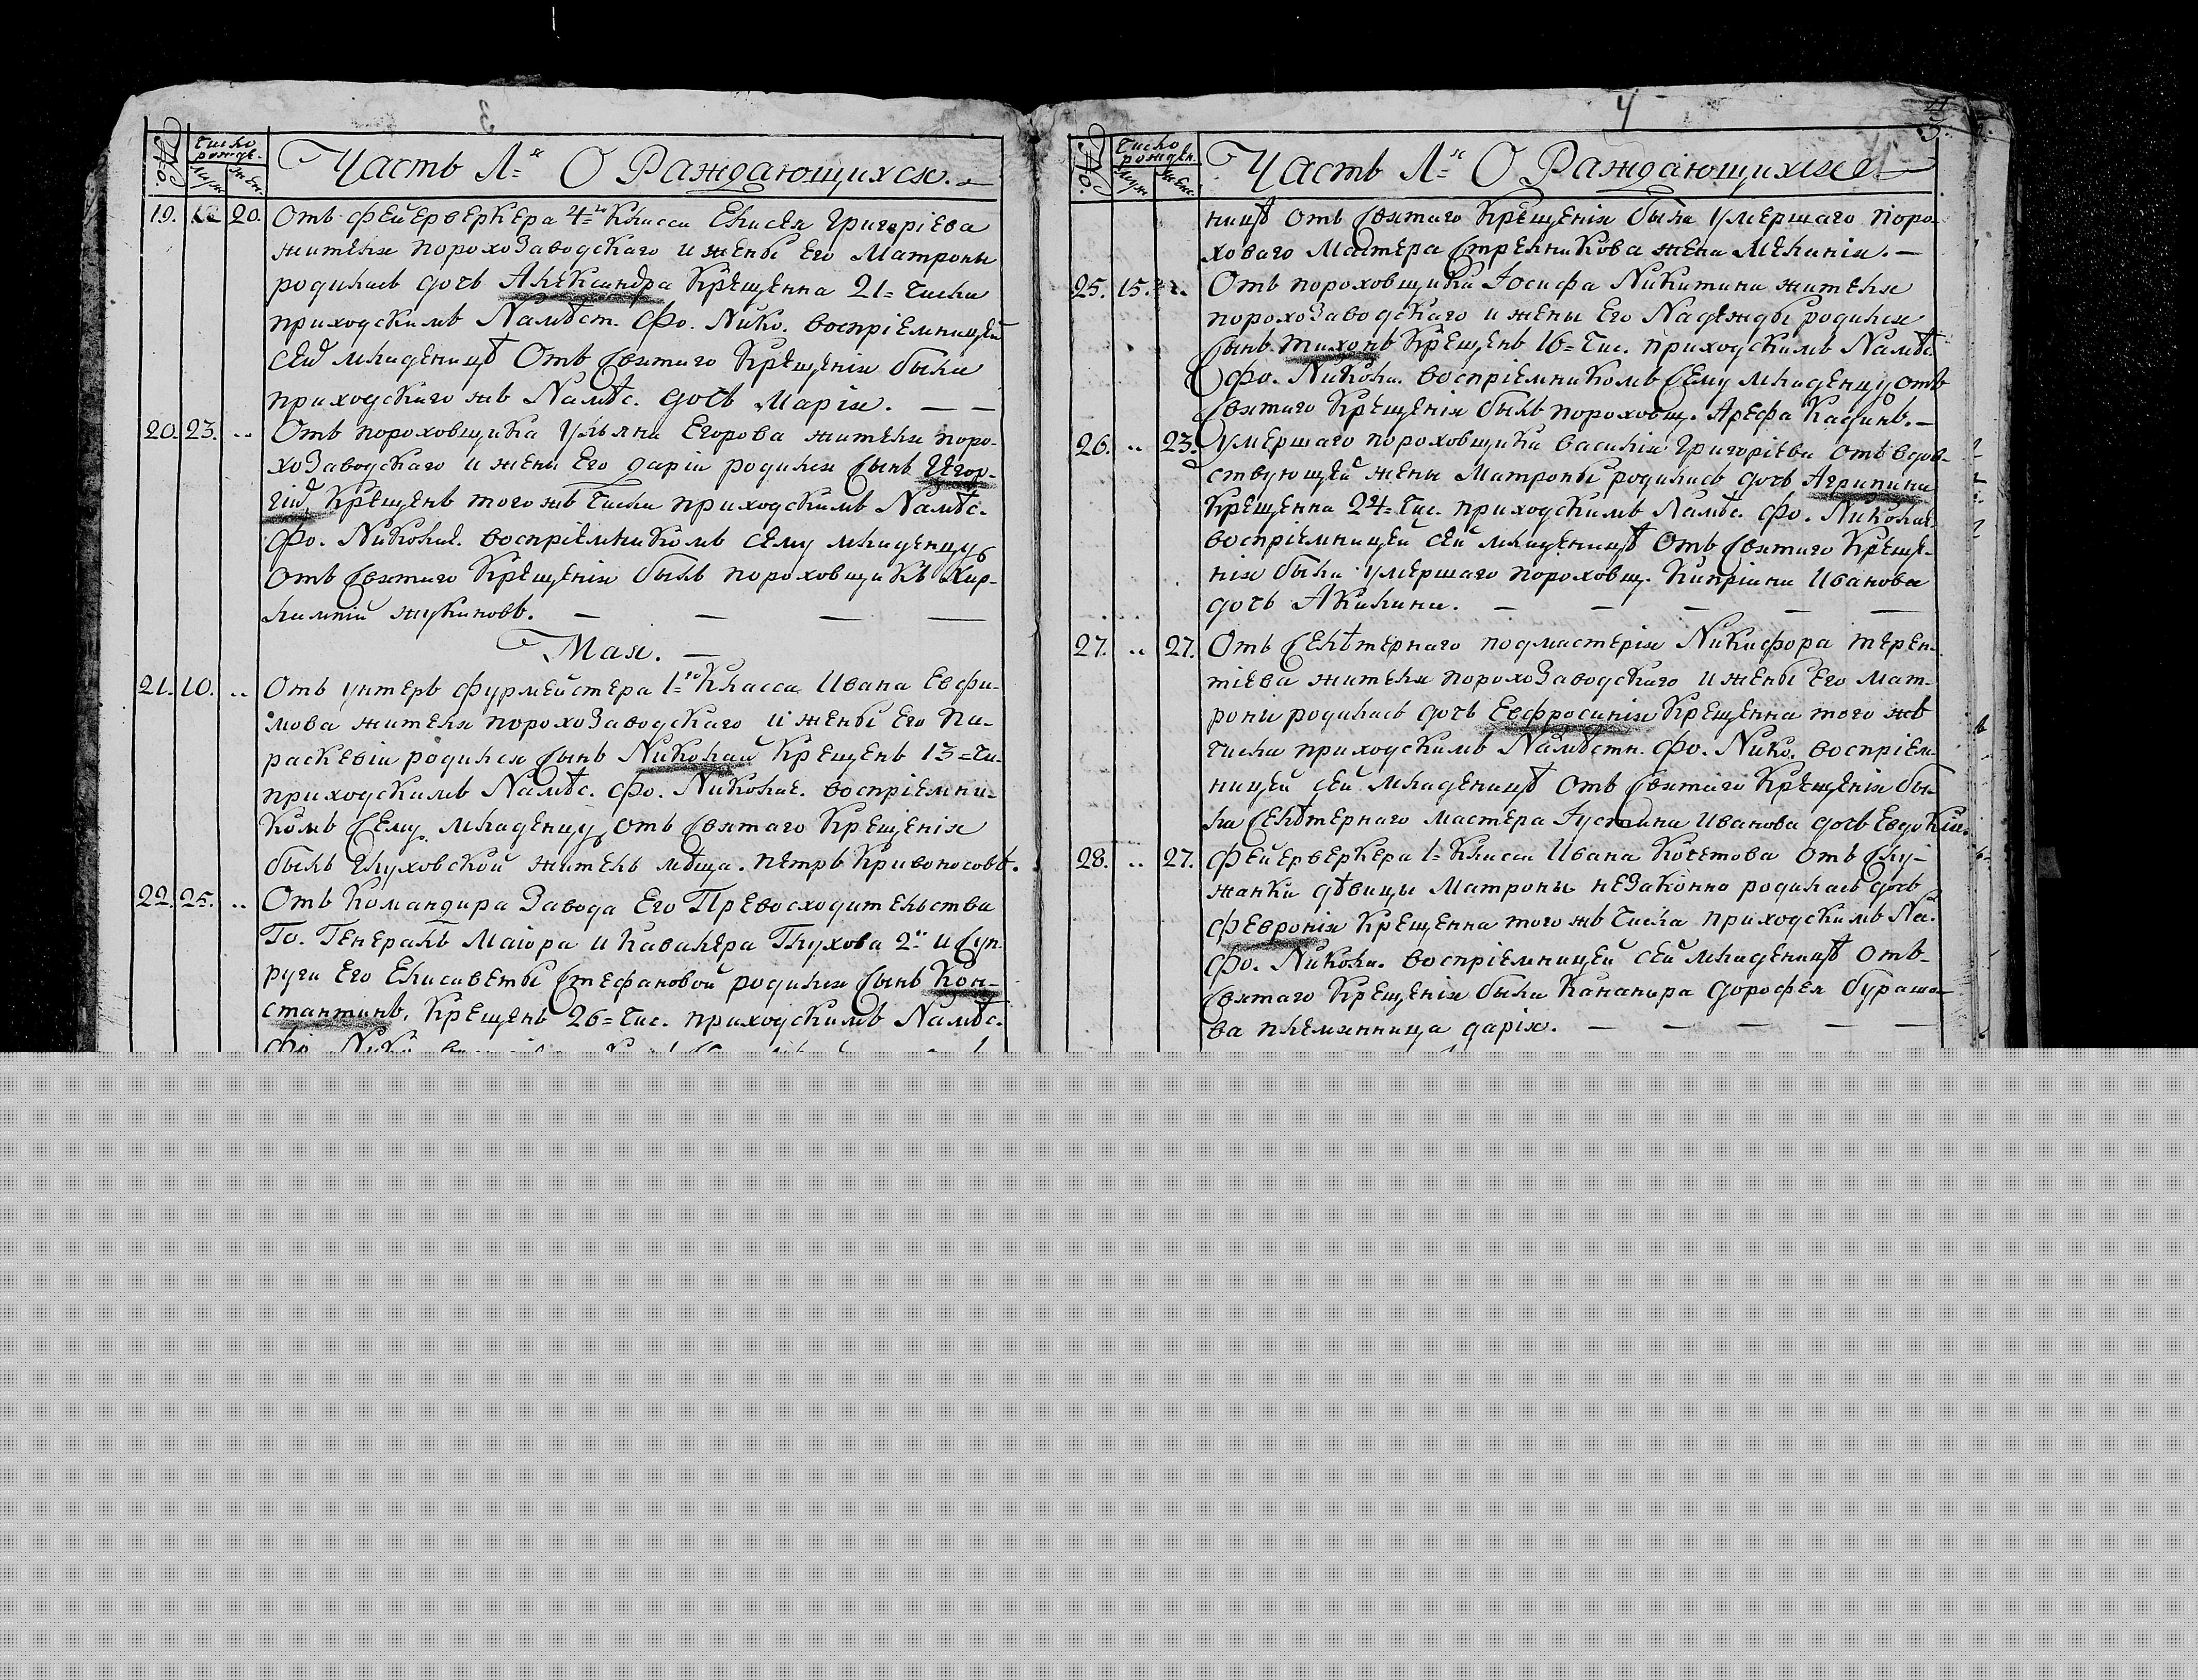 3
№.
Число
рожде.
Муж.
Жен.
Часть 1=я О Раждающихся.
19. 20. Отъ фейерверкера 4=го Класса Елисея Григоріева
жителя порохозаводскаго и жены его Матроны
родилась дочь Александра Крещенна 21= числа
приходскимъ Намѣст. Фо. Нико. воспріемницей
сей младеницѣ Отъ Святаго Крещенія была
приходскаго жъ Намѣс. дочь Марія. — —
20. 23. .. Отъ пороховщика Ульяна Егорова жителя поро-
хозаводскаго и жены Его Даріи родился Сынъ Геор-
гій, Крещенъ того жъ числа приходскимъ Намѣс.
Фо. Николае. воспріемникомъ сему младенцу
Отъ Святаго Крещенія былъ пороховщикъ Хар-
лампій Жукиновъ. — — — —
Мая. —
21. 10. .. Отъ унтеръ фурмейстера 1=го Класса Ивана Евфи-
мова жителя порохозаводскаго и жены Его Па-
раскевіи родился Сынъ Николай Крещенъ 13= чи-
приходскимъ Намѣс. Фо. Николае. воспріемни-
комъ Сему младенцу отъ Святаго Крещенія
былъ Глуховской житель мѣща. Петръ Кривоносовъ.
22. 25. .. Отъ Командира Завода Его Превосходительства
Го. Генералъ Маіора и Кавалера Глухова 2= и Суп-
руги Его Елисаветы Стефановой родился Сынъ Кон-
стантинъ, Крещенъ 26= чис. приходскимъ Намѣс.
4
№.
Число
рожден.
Муж.
Женс.
Часть 1=я О Раждающихся
ницѣ Отъ Святаго Крещенія была умершаго поро-
ховаго Мастера Стрелникова жена Меланія. —
25. 15. .. Отъ пороховщика Іосифа Никитина жителя
порохозаводскаго и жены Его Надежды родился
Сынъ Тихонъ Крещенъ 16= чис. приходскимъ Намѣс.
Фо. Никола. воспріемникомъ Сему младенцу отъ
Святаго Крещенія былъ пороховщ. Арефа Кащинъ. —
26. .. 23. Умершаго пороховщика Василія Григоріева отъ вдов-
ствующей жены Матроны родилась дочь Агрипина
Крещенна 24= чис. приходскимъ Намѣс. Фо. Николае.
воспріемницей сей младеницѣ Отъ Святаго Креще-
нія была умершаго пороховщ. Кипріяна Иванова
дочь Акилина. — — — — —
27. .. 27. Отъ Селѣтернаго подмастерія Никифора Терен-
тіева жителя порохозаводскаго и жены Его Мат-
роны родилась дочь Евфросинія Крещенна того жъ
числа приходскимъ Намѣстн. Фо. Нико. воспріем-
ницей сей младеницѣ Отъ Святаго Крещенія бы-
ла Селѣтернаго мастера Іустина Иванова дочь Евдокія.
28. .. 27. Фейерверкера 1= Класса Ивана Кочетова Отъ Слу-
жанки дѣвицы Матроны незаконно родилась дочь
Февронія Крещенна того жъ числа приходскимъ На.
Фо. Никола. воспріемницей сей младеницѣ отъ
Святаго Крещенія была Кананера Дорофея Бурашо-
ва племянница Дарія. — — — — —